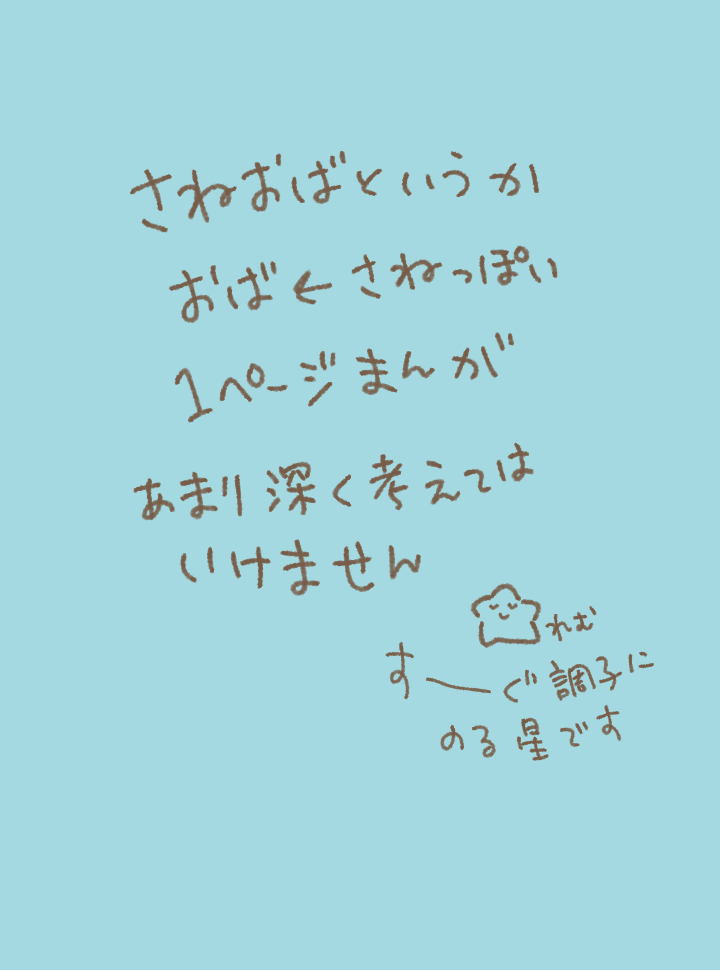 さねおばというか
おば←さねっぽい
1ページまんが
あまり深く考えては
いけません
れむ
す〜ぐ調子に
のる星です